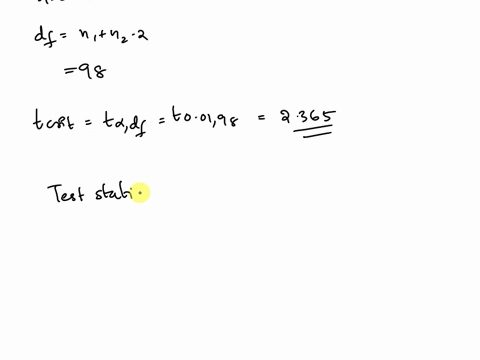 df = n₁+n₂-2
=98
tcrit = tα,df = t0.01,98 = 2.365
Test stati